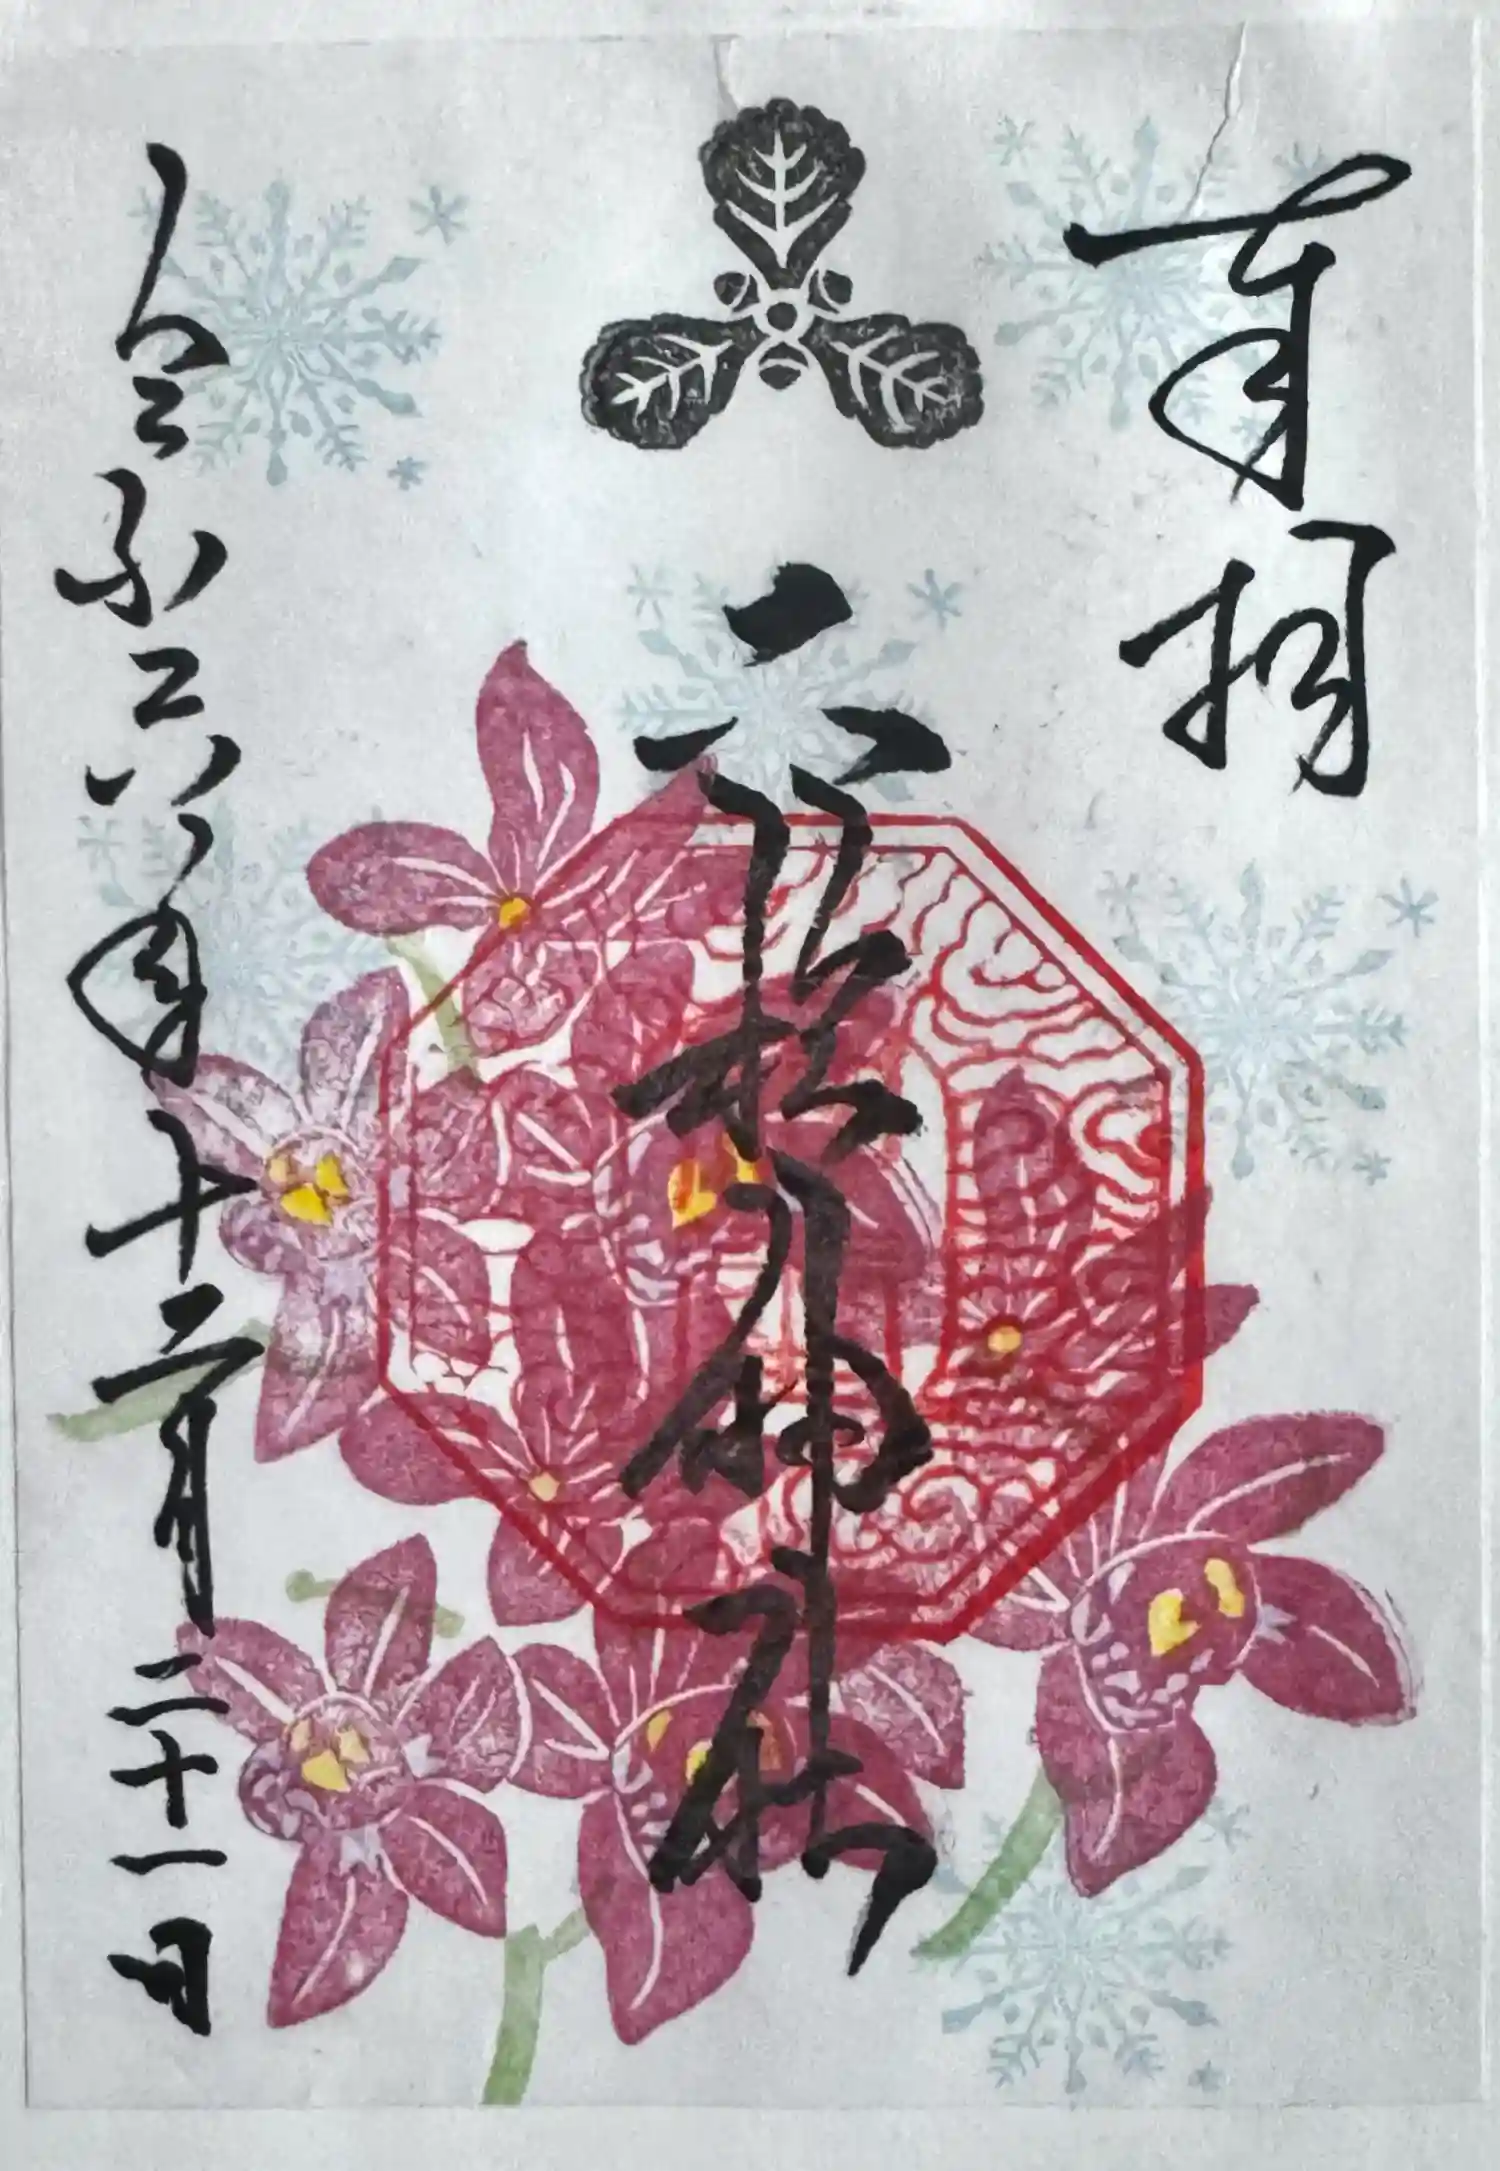 奉拝
六 神社
令和六年十二月二十一日